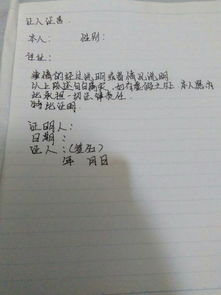 证人证言
本人：　　性别：
住址：
事情的经过说明或者情况说明
以上陈述句句属实，如有虚假之处，本人愿为
此承担一切法律责任
特此证明
证明人：
日期：
证人：(签名)
年 月 日